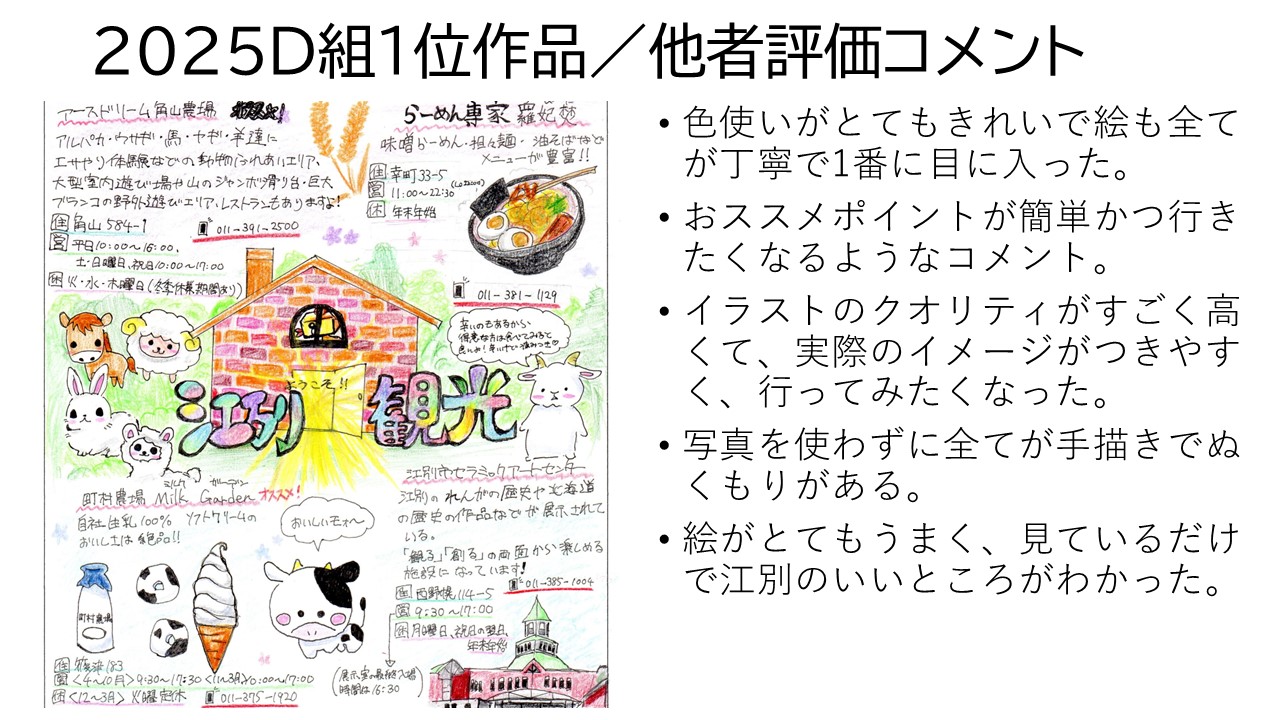 2025D組1位作品／他者評価コメント
アースドリーム角山農場
アルパカ・ウサギ・馬・ヤギ・羊達に
エサやり体験などの動物ふれあいエリア、
大型室内遊び場や山のジャンボ滑り台・巨大
ブランコの野外遊びエリア、レストランもありますよ!
住 角山584-1
011-391-2500
営 平日10:00〜16:00、
土・日曜日、祝日10:00〜17:00
休 火・水・木曜日(冬季休業期間あり)
らーめん専家 羅妃焚
味噌らーめん・担々麺・油そばなど
メニューが豊富!!
住 幸町33-5
営 11:00〜22:30
休 年末年始
011-381-1129
辛いのもあるから
得意な方は食べてみると
ようこそ!!
江別 観光
町村農場 Milk Garden オススメ!
ミルク ガーデン
自社生乳100% ソフトクリームの
おいしさは絶品!!
おいしいモォ〜
町村農場
住 篠津183
営 <4〜10月>9:30〜17:30 <11〜3月>10:00〜17:00
休 <12〜3月> 火曜定休
011-375-1920
江別市セラミックアートセンター
江別のれんがの歴史や北海道
の歴史の作品などが展示されて
いる。
「観る」「創る」の両面から楽しめる
施設になっています!
011-385-1004
住 西野幌114-5
営 9:30〜17:00
休 月曜日、祝日の翌日、
年末年始
(展示室の最終入場
時間は16:30)
• 色使いがとてもきれいで絵も全て
が丁寧で1番に目に入った。
• おススメポイントが簡単かつ行き
たくなるようなコメント。
• イラストのクオリティがすごく高
くて、実際のイメージがつきやす
く、行ってみたくなった。
• 写真を使わずに全てが手描きでぬ
くもりがある。
• 絵がとてもうまく、見ているだけ
で江別のいいところがわかった。